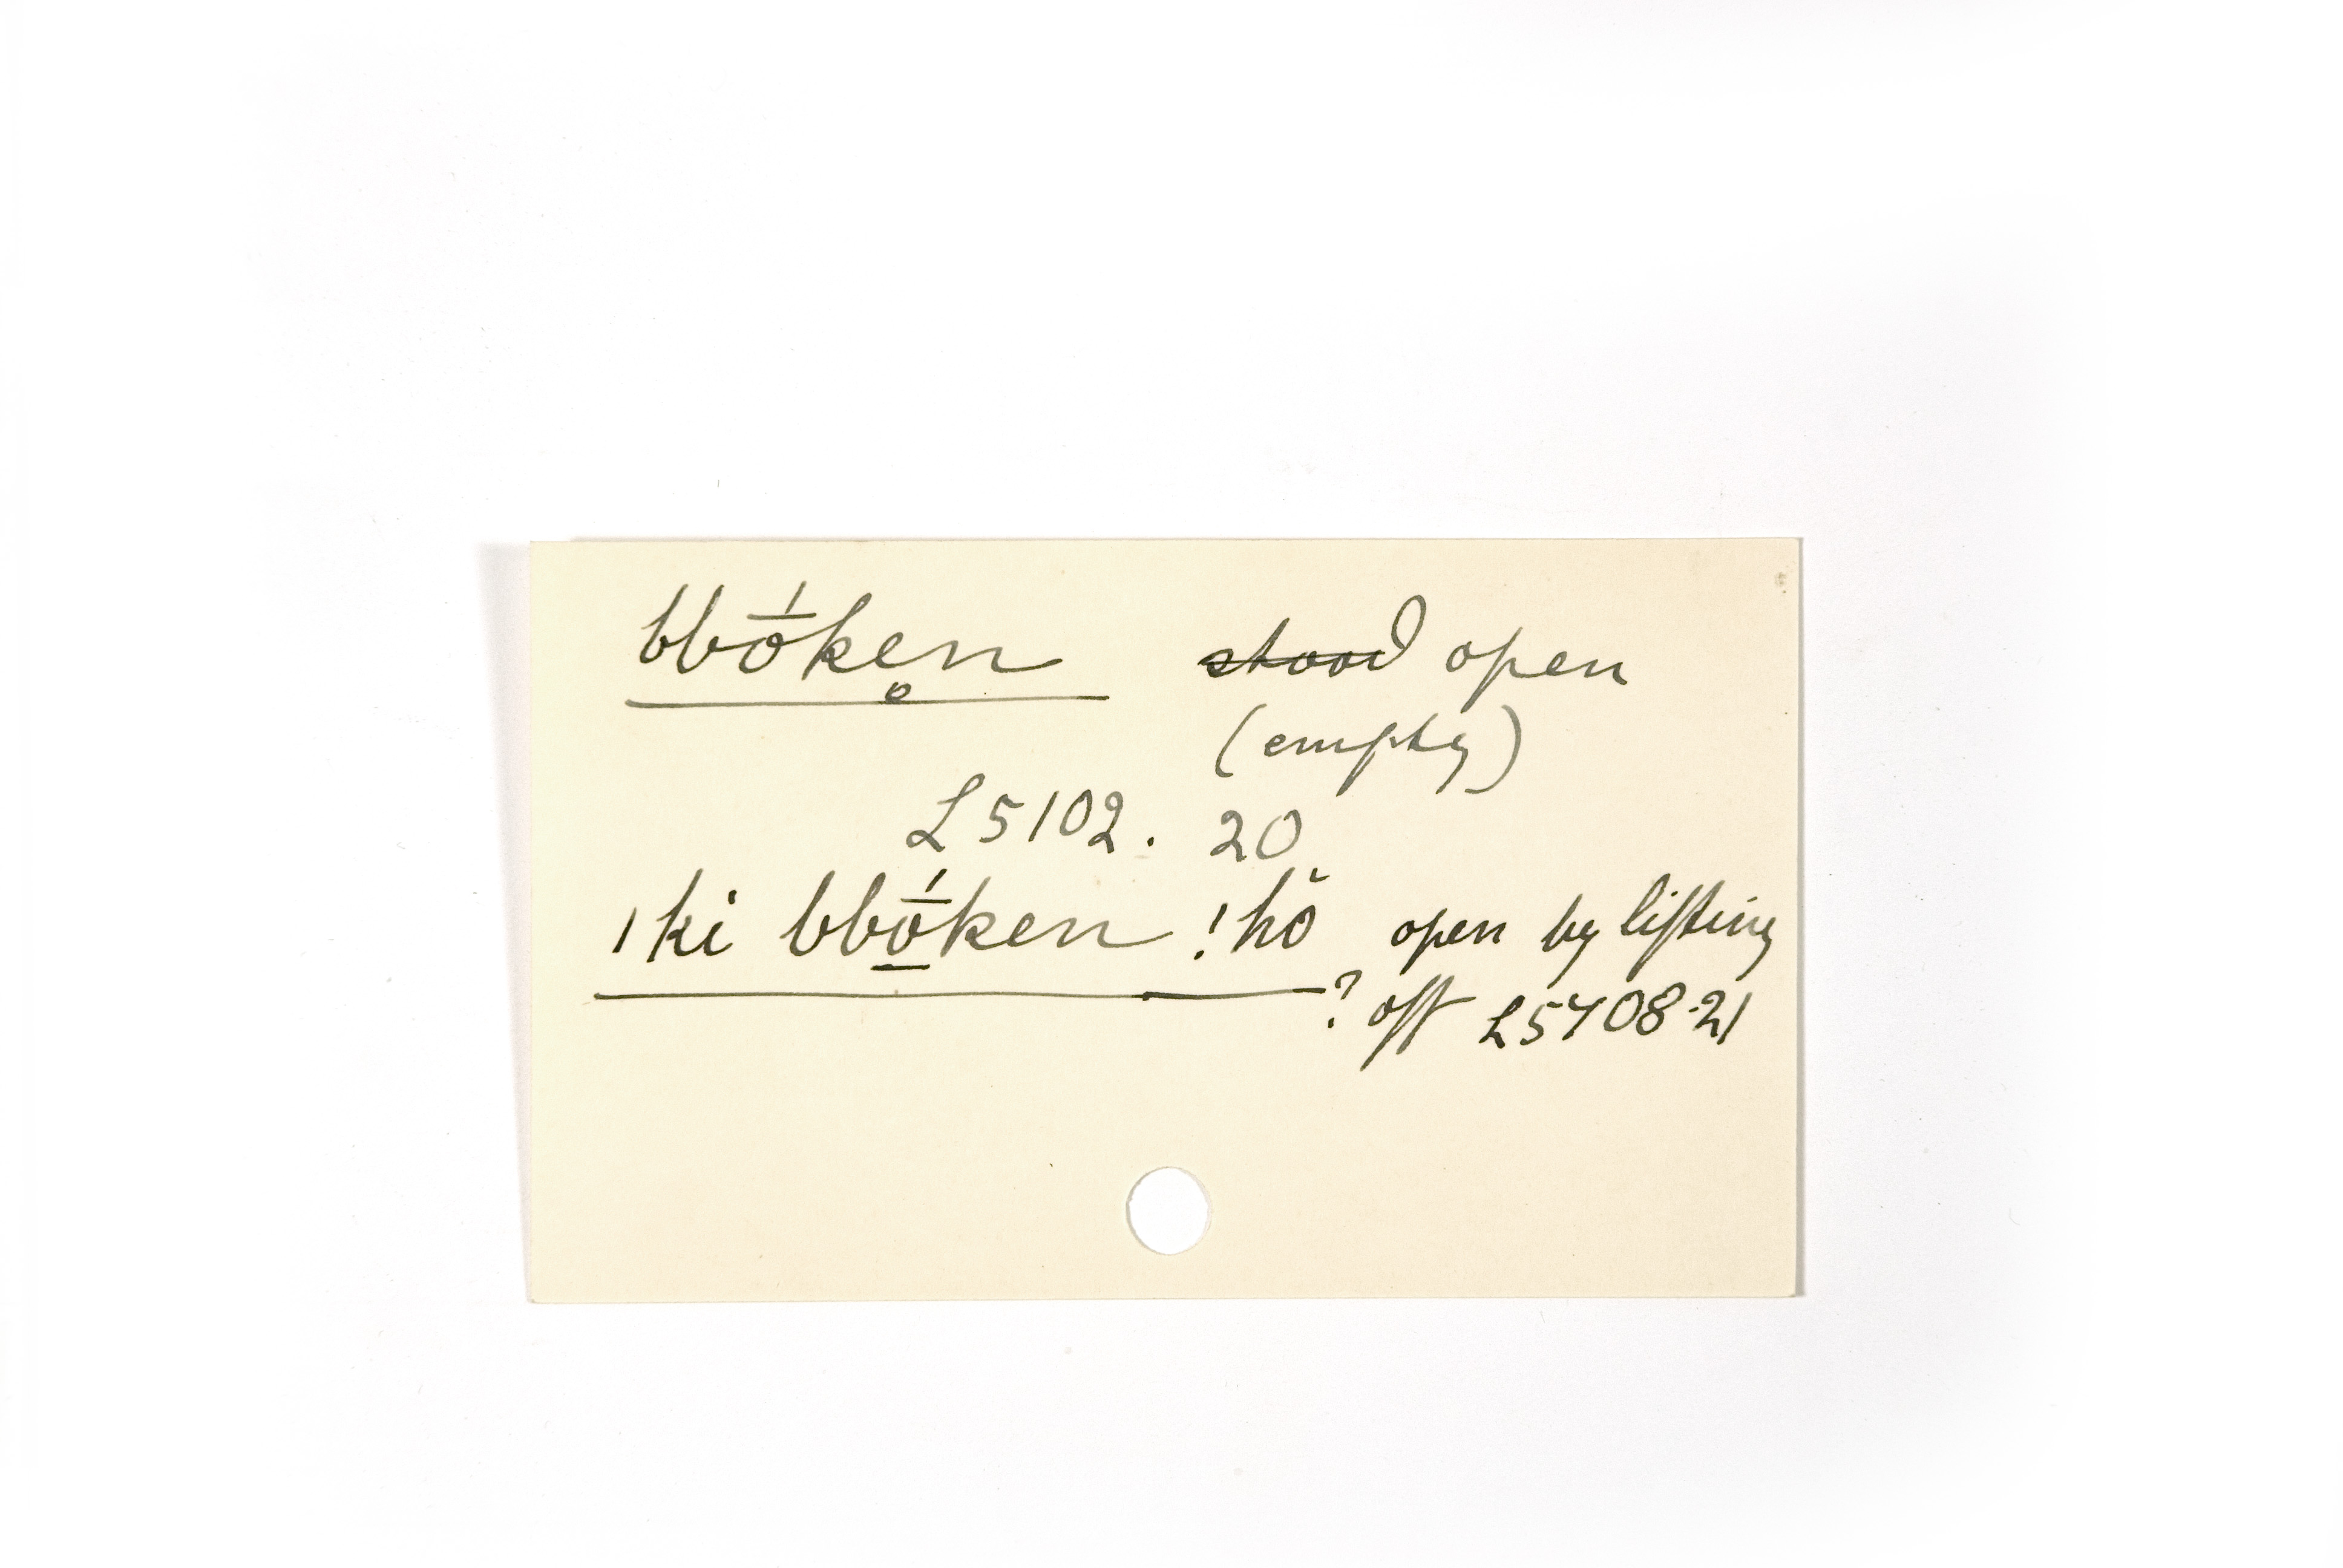 bbṓke̥n ~~stood~~ open
(empty)
L5102. 20
ǀki bbṓ̠ken !hŏ open by lifting
? off L5408.21